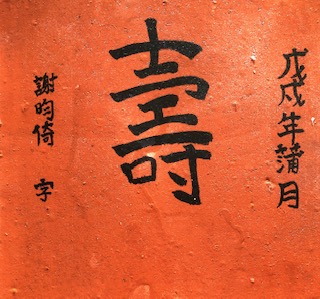 戊戌年蒲月
壽
謝昀倚 字